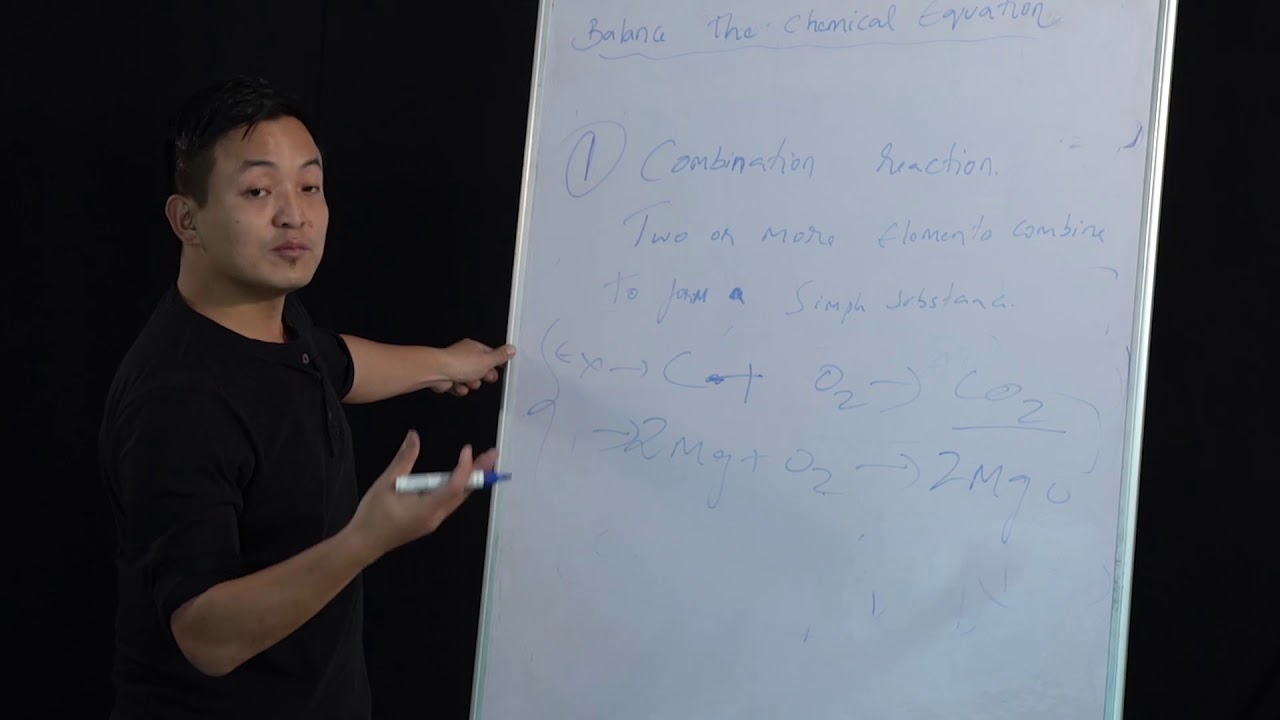 Balance The Chemical Equation
① Combination reaction.
Two or more Elements combine
to form a Simple substance.
Ex → C + O₂ → CO₂
→ 2Mg + O₂ → 2MgO